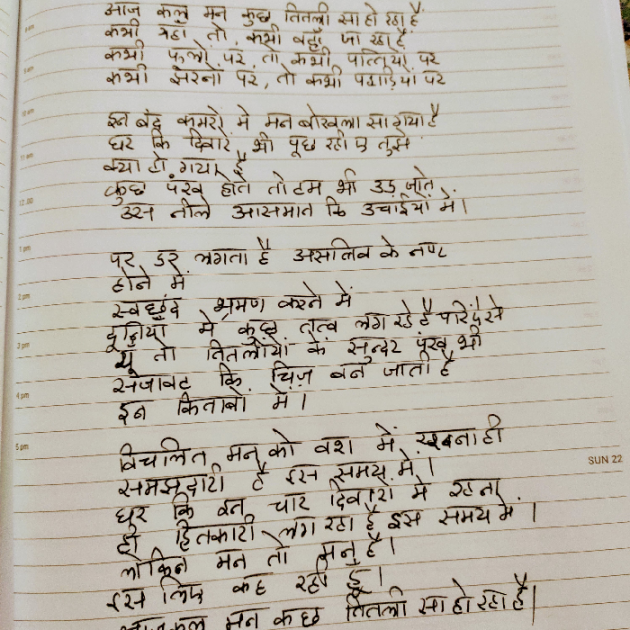 आज कल मन कुछ तितली सा हो रहा है
कभी यहाँ तो कभी वहाँ जा रहा है
कभी फुलों पर तो कभी पत्तियों पर
कभी झरनों पर, तो कभी पहाड़ियों पर
इन बंद कमरों मे मन बोखला सा गया है
घर कि दिवारे भी पूछ रही ए तुझे
क्या हो गया है
कुछ पंख होते तो हम भी उड़ जाते
उस नीले आसमान कि उचाईयों में।
पर डर लगता है के नष्ट
होने में
स्वछंद भ्रमण करने में
मे कुछ तत्व लग रहे है
यू तो तितलीयों के सुन्दर पंख भी
सजावट कि चिज़ बन जाती है
इन किताबों में।
विचलित मन को वश में रखना ही
समझदारी है इस समय मे।
घर कि इन चार दिवारों मे रहना
ही हितकारी लग रहा है इस समय मे।
लेकिन मन तो मनु है।
इस लिए कह रही हू।
आज कल मन कुछ तितली सा हो रहा है।
SUN 22
9 am
10 am
11 am
12.00
1 pm
2 pm
3 pm
4 pm
5 pm